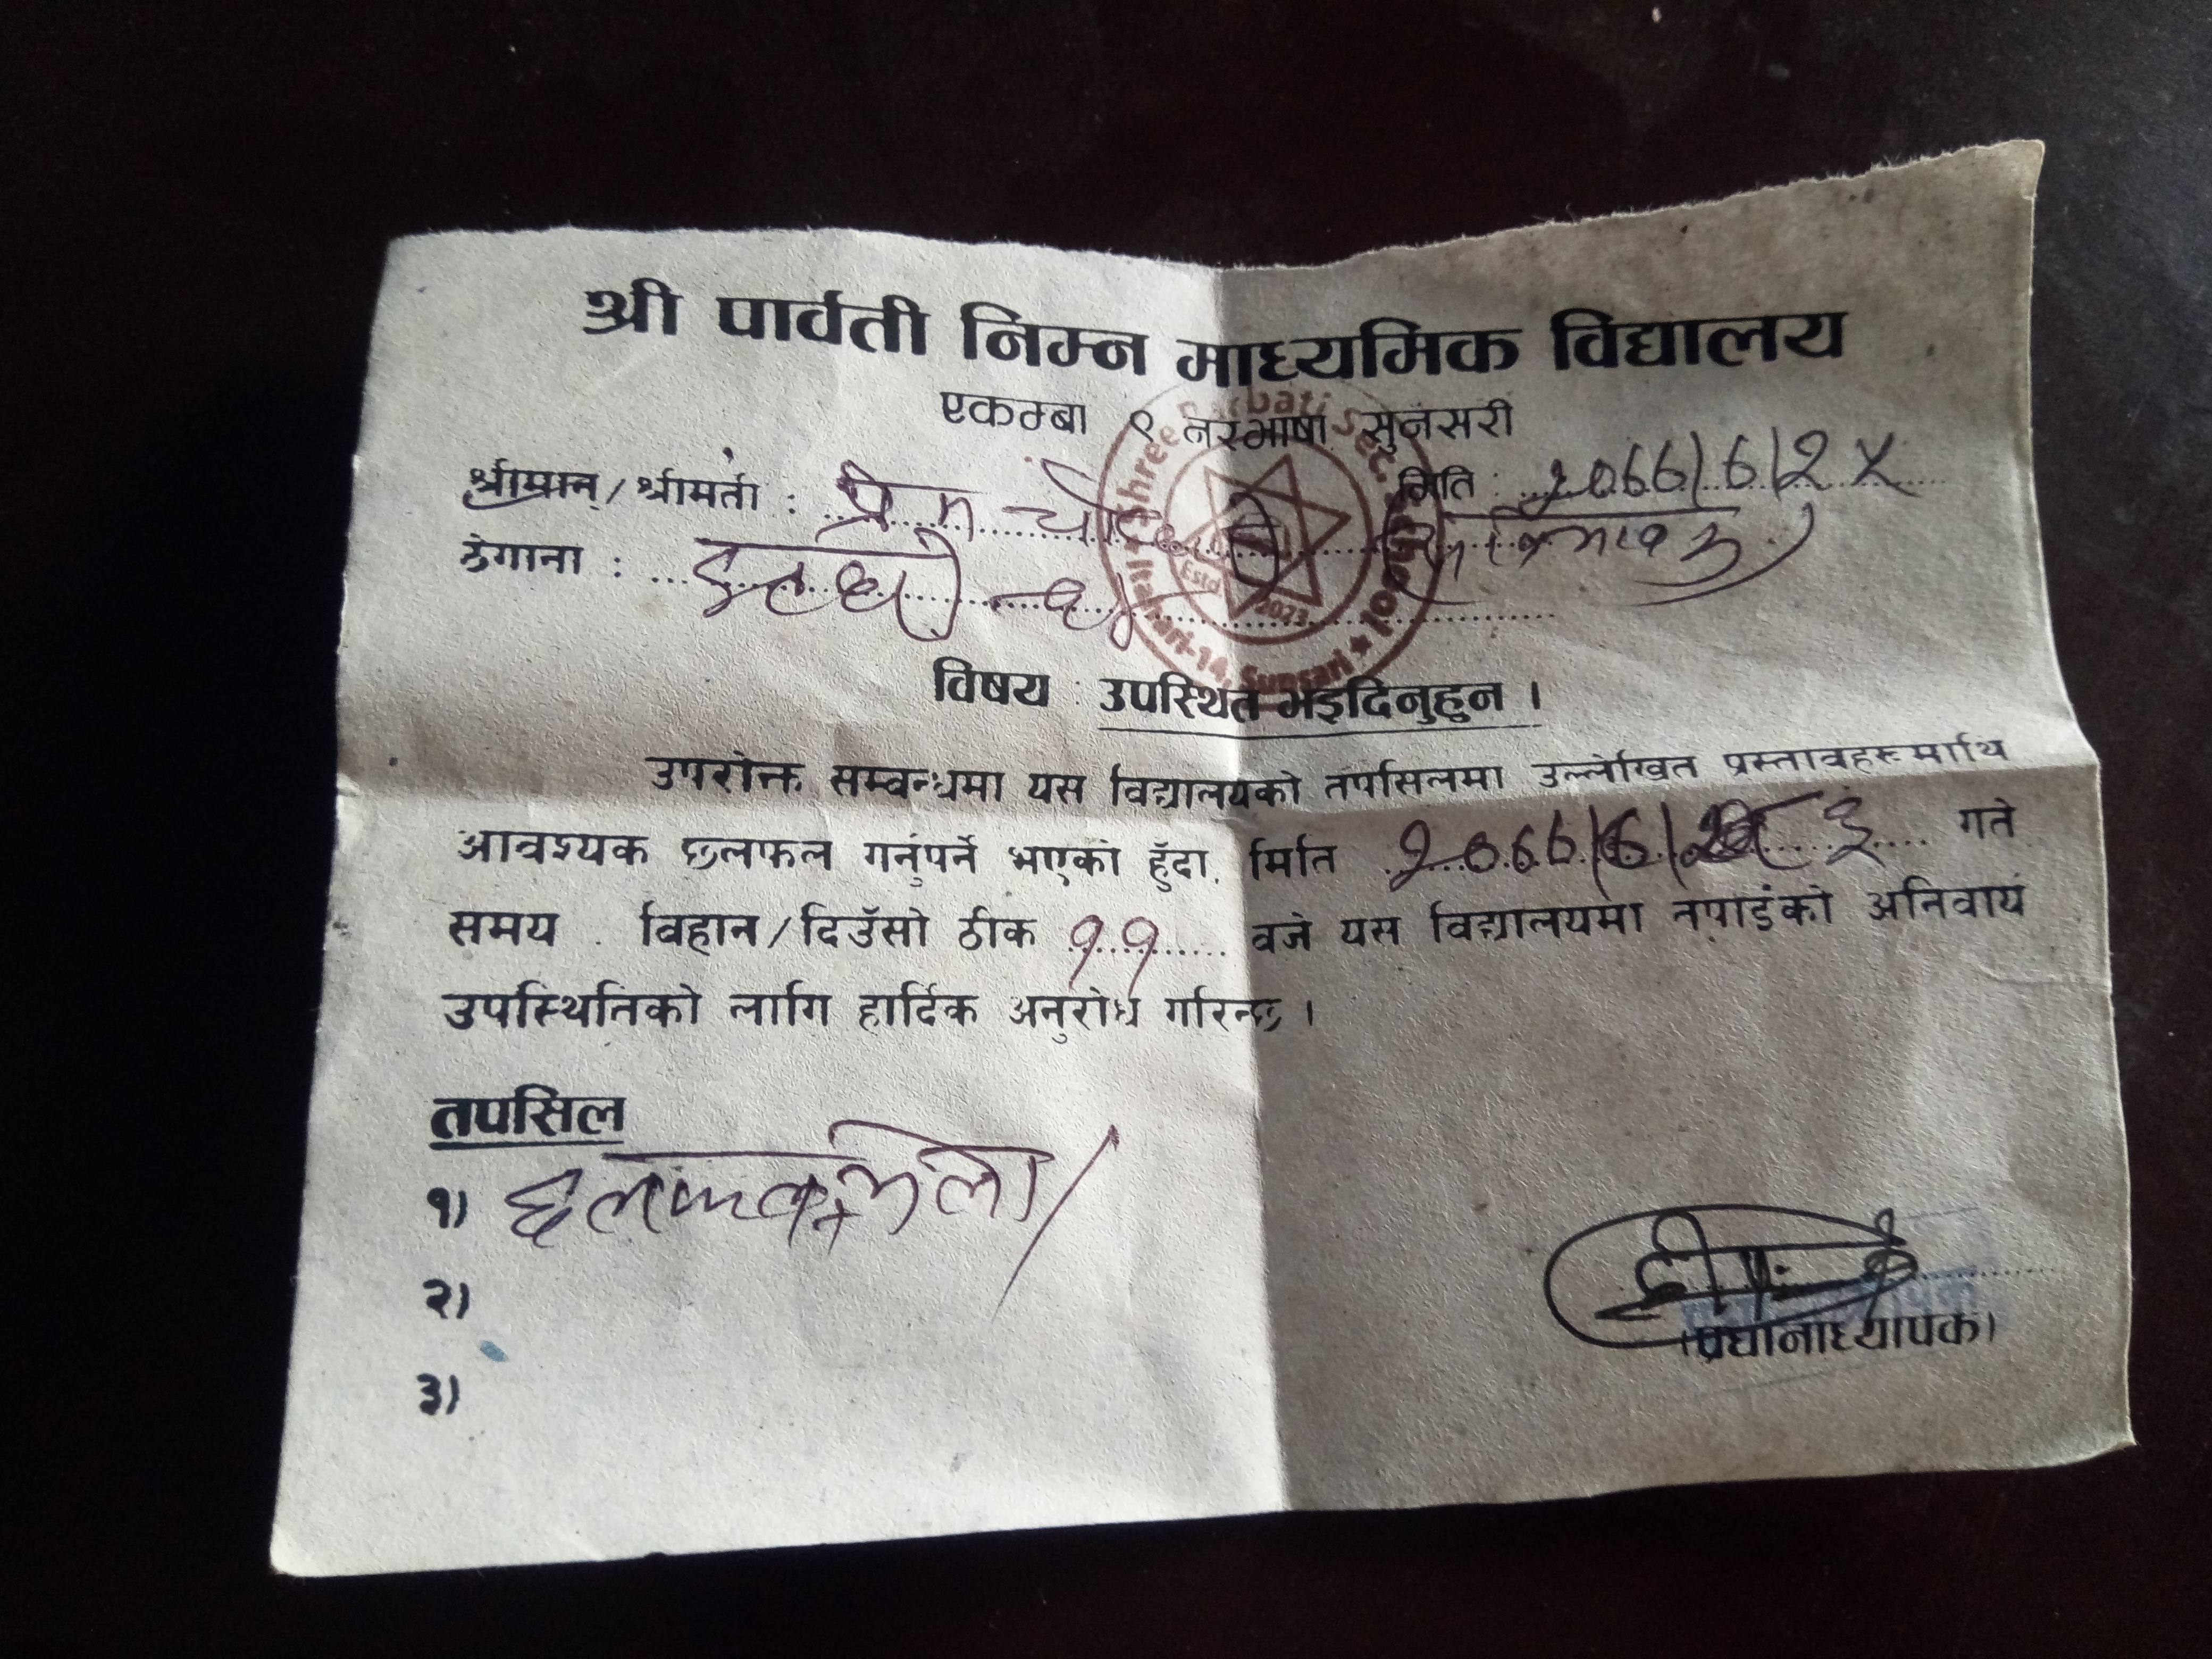 श्री पार्वती निम्न माध्यमिक विद्यालय
एकम्बा ९ नरभाषा सुनसरी
मिति :
श्रीमान् / श्रीमती : प्रेम
ठेगाना : इटहरी
Shree Parbati Sec. School
Estd 2023
Itahari-14, Sunsari
विषय : उपस्थित भइदिनुहुन ।
उपरोक्त सम्बन्धमा यस विद्यालयको तपसिलमा उल्लेखित प्रस्तावहरूमाथि
आवश्यक छलफल गर्नुपर्ने भएको हुँदा, मिति गते
समय : विहान / दिउँसो ठीक ११ वजे यस विद्यालयमा नपाईंको अनिवार्य
उपस्थितिको लागि हार्दिक अनुरोध गरिन्छ ।
तपसिल
१)
२)
३)
(प्रधानाध्यापक)